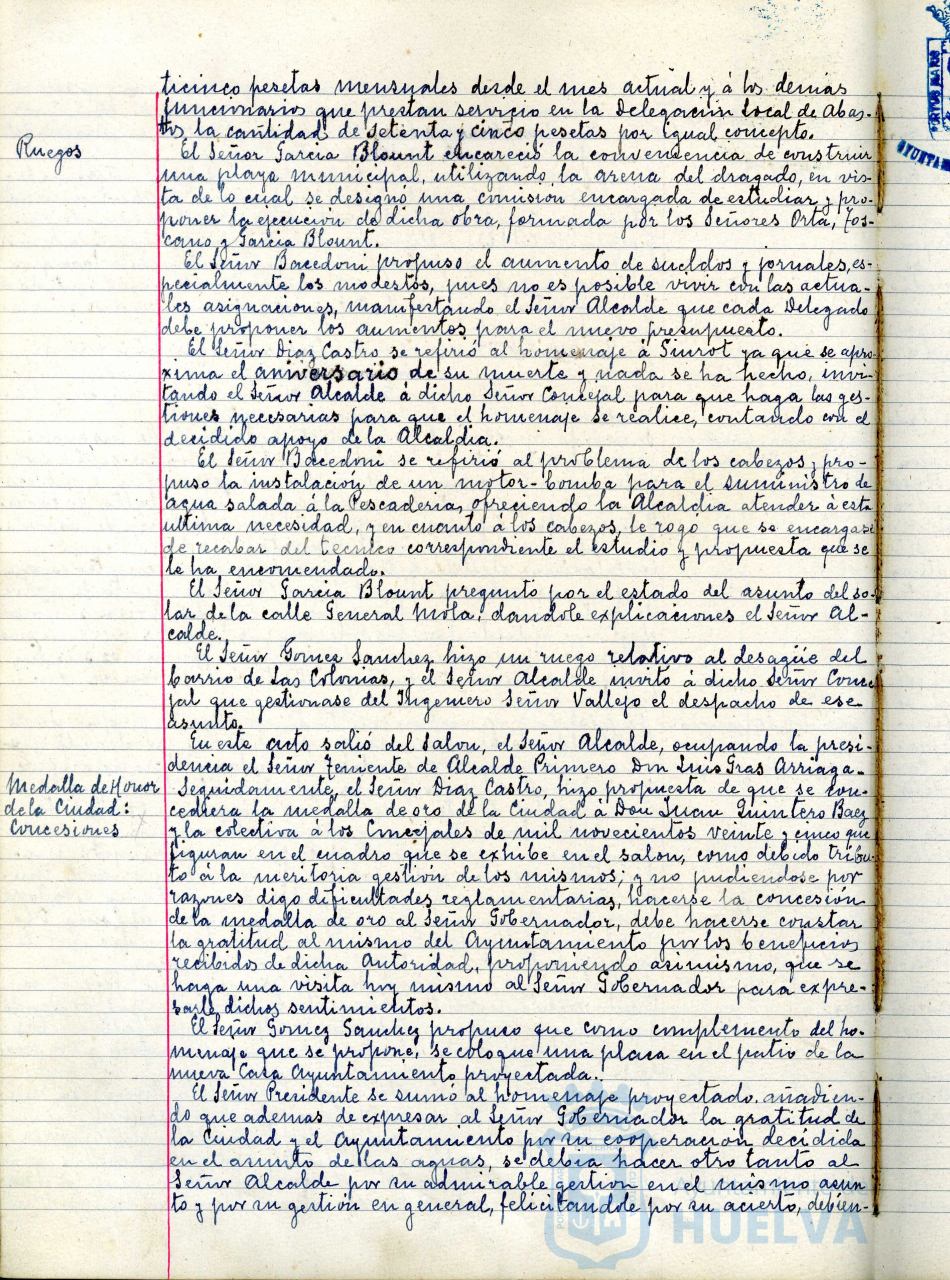 ticinco pesetas mensuales desde el mes actual y á los demás
funcionarios que prestan servicio en la Delegación Local de Abas-
tos la cantidad de setenta y cinco pesetas por igual concepto.
Ruegos
El Señor Garcia Blount encareció la conveniencia de construir
una playa municipal, utilizando la arena del dragado, en vis-
ta de lo cual se designó una comisión encargada de estudiar y pro-
poner la ejecución de dicha obra, formada por los Señores Orta, Tos-
cano y Garcia Blount.
El Señor Bacedoni propuso el aumento de sueldos y jornales, es-
pecialmente los modestos, pues no es posible vivir con las actua-
les asignaciones, manifestando el Señor Alcalde que cada Delegado
debe proponer los aumentos para el nuevo presupuesto.
El Señor Diaz Castro se refirió al homenaje á Siurot ya que se apro-
xima el aniversario de su muerte y nada se ha hecho, invi-
tando el Señor Alcalde á dicho Señor Concejal para que haga las ges-
tiones necesarias para que el homenaje se realice, contando con el
decidido apoyo de la Alcaldia.
El Señor Bacedoni se refirió al problema de los cabezos y pro-
puso la instalación de un motor-bomba para el suministro de
agua salada á la Pescaderia, ofreciendo la Alcaldia atender á esta
ultima necesidad, y en cuanto á los cabezos, le rogó que se encargase
de recabar del tecnico correspondiente el estudio y propuesta que se
le ha encomendado.
El Señor Garcia Blount preguntó por el estado del asunto del so-
lar de la calle General Mola: dandole explicaciones el Señor Al-
calde.
El Señor Gomez Sanchez hizo un ruego relativo al desagüe del
barrio de Las Colonias, y el Señor Alcalde invitó á dicho Señor Conce-
jal que gestionase del Ingeniero Señor Vallejo el despacho de ese
asunto.
En este acto salió del Salon, el Señor Alcalde, ocupando la presi-
dencia el Señor Teniente de Alcalde Primero Don Luis Gras Arriaga.
Medalla de Honor
de la Ciudad:
Concesiones
Seguidamente, el Señor Diaz Castro, hizo propuesta de que se con-
cediera la medalla de oro de la Ciudad á Don Juan Quintero Baez
y la colectiva á los Concejales de mil novecientos veinte y cinco que
figuran en el cuadro que se exhibe en el salon, como debido tribu-
to á la meritoria gestión de los mismos; y no pudiendose por
razones digo dificultades reglamentarias, hacerse la concesión
de la medalla de oro al Señor Gobernador, debe hacerse constar
la gratitud al mismo del Ayuntamiento por los beneficios
recibidos de dicha Autoridad, proponiendo asimismo, que se
haga una visita hoy mismo al Señor Gobernador para expre-
sarle dichos sentimientos.
El Señor Gomez Sanchez propuso que como complemento del ho-
menaje que se propone, se coloque una placa en el patio de la
nueva Casa Ayuntamiento proyectada.
El Señor Presidente se sumó al homenaje proyectado, añadien-
do que ademas de expresar al Señor Gobernador la gratitud de
la Ciudad y el Ayuntamiento por su cooperacion decidida
en el asunto de las aguas, se debia hacer otro tanto al
Señor Alcalde por su admirable gestion en el mismo asun-
to y por su gestión en general, felicitandole por su acierto, debien-
HUELVA